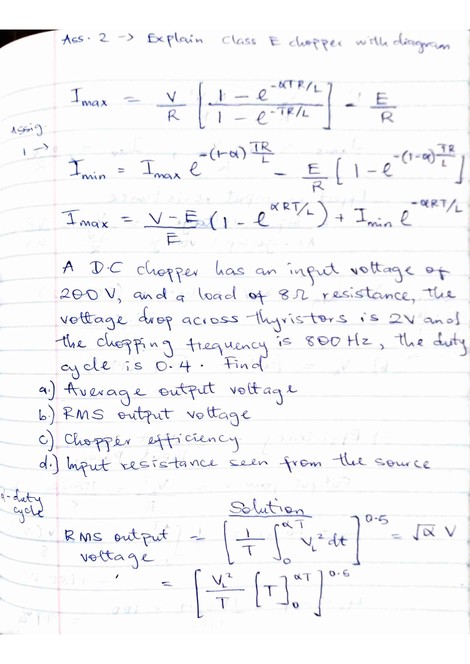 Ass. 2 → Explain Class E chopper with diagram
I_max = V/R [ (1 - e^(-αTR/L)) / (1 - e^(-TR/L)) ] - E/R
Assig
1 →
I_min = I_max e^(-(1-α) TR/L) - E/R [ 1 - e^(-(1-α) TR/L) ]
I_max = (V - E)/E (1 - e^(αRT/L)) + I_min e^(-αRT/L)
A D.C chopper has an input voltage of
200V, and a load of 8Ω resistance, the
voltage drop across thyristors is 2V and
the chopping frequency is 800 Hz, the duty
cycle is 0.4. Find
a.) Average output voltage
b.) RMS output voltage
c.) Chopper efficiency
d.) Input resistance seen from the source
Solution
α-duty
cycle
RMS output voltage = [ 1/T ∫_0^(αT) V_L^2 dt ]^0.5 = √α V
= [ V_L^2/T [T]_0^(αT) ]^0.5